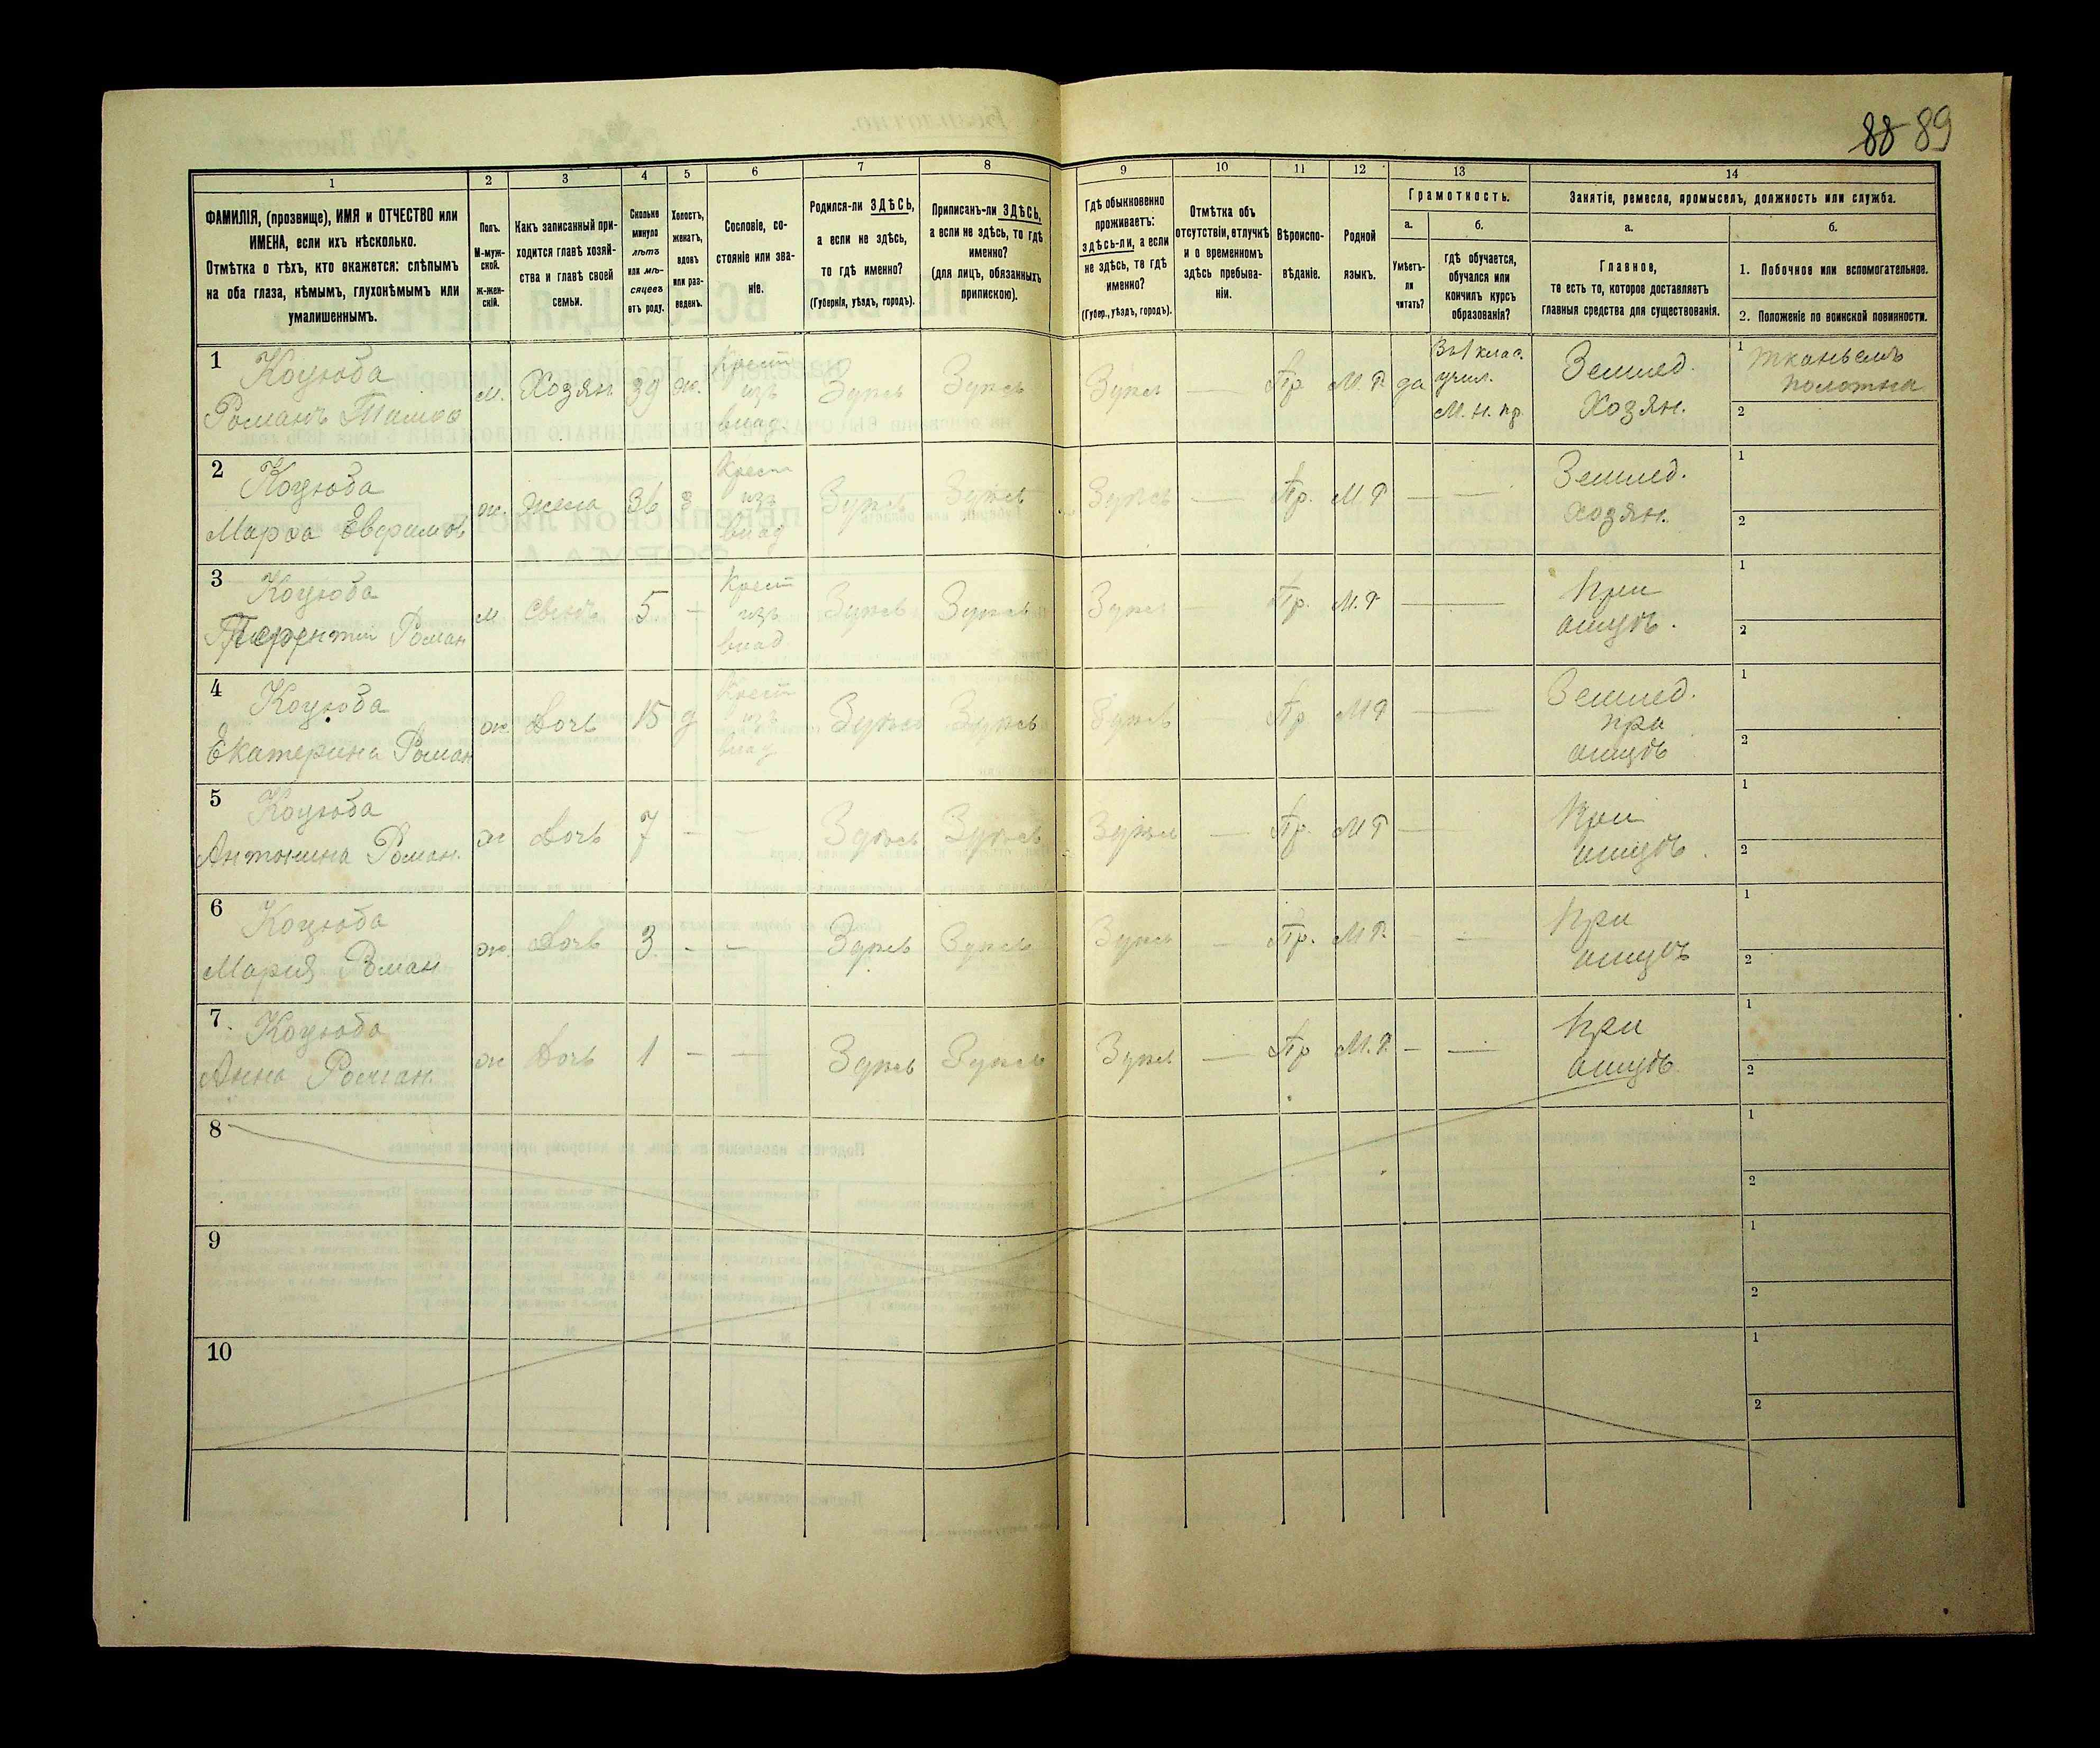 88 89
1
2
3
4
5
6
7
8
9
10
11
12
13
14
ФАМИЛІЯ, (прозвище), ИМЯ и ОТЧЕСТВО или
ИМЕНА, если ихъ нѣсколько.
Отмѣтка о тѣхъ, кто окажется: слѣпымъ
на оба глаза, нѣмымъ, глухонѣмымъ или
умалишеннымъ.
Полъ.
М-муж-
ской.
ж-жен-
скій.
Какъ записанный при-
ходится главѣ хозяй-
ства и главѣ своей
семьи.
Сколько
минуло
лѣтъ
или мѣ-
сяцевъ
отъ роду.
Холостъ,
женатъ,
вдовъ
или раз-
веденъ.
Сословіе, со-
стояніе или зва-
ніе.
Родился-ли ЗДѢСЬ,
а если не здѣсь,
то гдѣ именно?
(Губернія, уѣздъ, городъ).
Приписанъ-ли ЗДѢСЬ,
а если не здѣсь, то гдѣ
именно?
(для лицъ, обязанныхъ
припискою).
Гдѣ обыкновенно
проживаетъ:
здѣсь-ли, а если
не здѣсь, то гдѣ
именно?
(Губер., уѣздъ, городъ).
Отмѣтка объ
отсутствіи, отлучкѣ
и о временномъ
здѣсь пребыва-
ніи.
Вѣроиспо-
вѣданіе.
Родной
языкъ.
Грамотность.
а.
Умѣетъ-
ли
читать?
б.
гдѣ обучается,
обучался или
кончилъ курсъ
образованія?
Занятіе, ремесло, промыселъ, должность или служба.
а.
Главное,
то есть то, которое доставляетъ
главныя средства для существованія.
б.
1. Побочное или вспомогательное.
2. Положеніе по воинской повинности.
1 Коцюба
Романъ
м. Хозян 39 ж.
Крест
изъ
влад
Здѣсь Здѣсь Здѣсь — Пр М.Р. да
Въ 1 клас.
учил.
М. н. пр.
Землед.
Хозян.
1 тканьемъ
полотна
2
2 Коцюба
Марѳа Евфимов
ж. жена 36 з
Крест
изъ
влад
Здѣсь Здѣсь Здѣсь — Пр. М Р — —
Землед.
хозян.
1
2
3 Коцюба
Терентій Роман
м Сынъ 5 —
Крест
изъ
влад
Здѣсь Здѣсь Здѣсь — Пр. М.Р —
При
отцѣ.
1
2
4 Коцюба
Екатерина Роман
ж Дочь 15 д
Крест
изъ
влад
Здѣсь Здѣсь Здѣсь — Пр М Р —
Землед.
при
отцѣ
1
2
5 Коцюба
Антонина Роман.
ж Дочь 7 — — Здѣсь Здѣсь Здѣсь — Пр. М Р —
При
отцѣ.
1
2
6 Коцюба
Мария Роман
ж. Дочь 3 - — Здѣсь Здѣсь Здѣсь — Пр. М Р. - —
При
отцѣ
1
2
7. Коцюба
Анна Роман.
ж Дочь 1 — — Здѣсь Здѣсь Здѣсь — Пр М.Р. — —
При
отцѣ
1
2
8
1
2
9
1
2
10
1
2